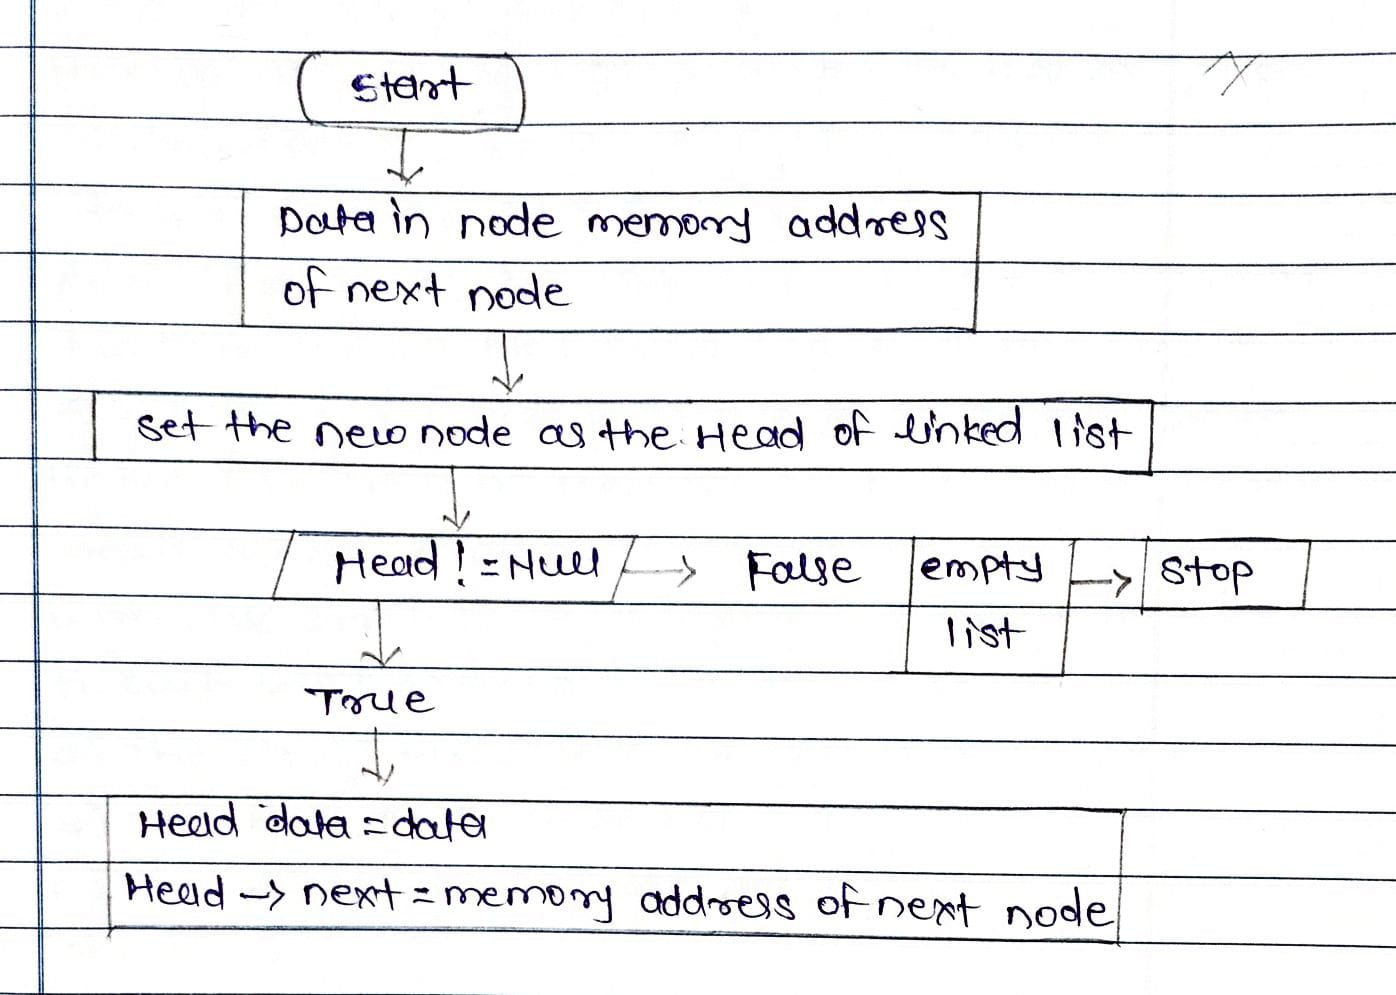 Start
Data in node memory address
of next node
Set the new node as the Head of linked list
Head != Null → False empty → Stop
list
True
Head data = data
Head → next = memory address of next node